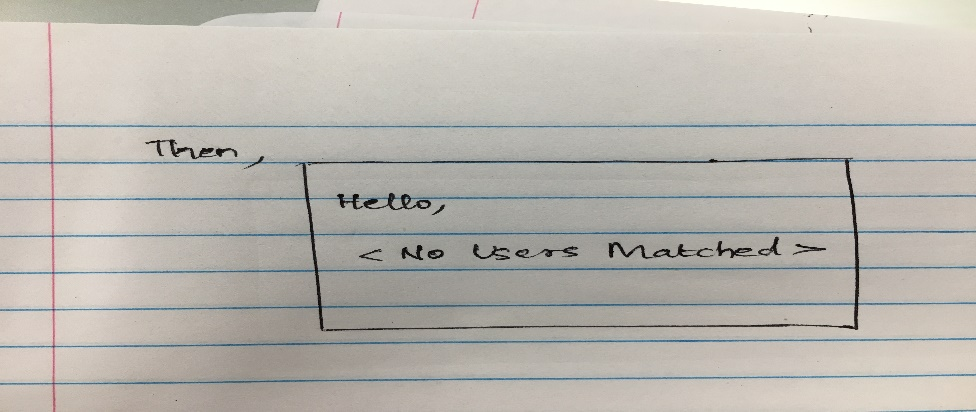 Then,
Hello,
< No Users Matched >